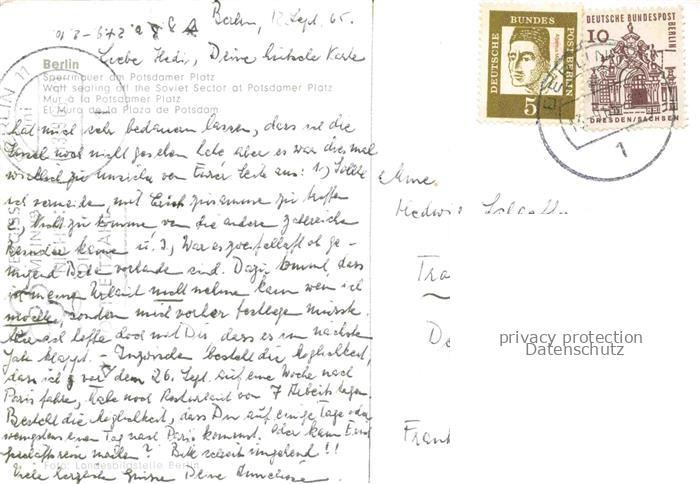 Berlin, 12. Sept. 65.
Liebe Hedi, Deine hübsche Karte
Berlin
Sperrmauer am Potsdamer Platz
Wall sealing off the Soviet Sector at Potsdamer Platz
Mur à la Potsdamer Platz
El Muro de la Plaza de Potsdam
hat mich sehr bedauern lassen, dass ich die
Insel noch nicht gesehen habe aber es war diesmal
wirklich zu unsicher von Eurer Seite aus: 1.) Sollte
ich vermeiden, mit Erich zusammen zu treffen
2. Nicht zu kommen wenn die andere zahlreiche
Besucher kämen u. 3.) War es zweifelhaft ob ge-
nügend Betten vorhanden sind. Dazu kommt, dass
ich meinen Urlaub nicht nehmen kann wenn ich
möchte, sondern mich vorher festlegen musste.
Aber ich hoffe doch mit Dir, dass es im nächsten
Jahr klappt. - Inzwischen besteht die Möglichkeit,
dass ich vor dem 26. Sept. auf eine Woche nach
Paris fahre, habe noch Resturlaub von 7 Arbeitstagen.
Besteht die Möglichkeit, dass Du auf einige Tage oder
wenigstens einen Tag nach Paris kommst. Oder kann Erich
geschäftlich reisen? Bitte schreib umgehend!!
Viele herzliche Grüsse Deine
Foto: Landesbildstelle Berlin
DEUTSCHE BUNDESPOST BERLIN
5
DEUTSCHE BUNDESPOST BERLIN
10
DRESDEN/SACHSEN
BERLIN
1
Mme.
Hedwig
Frank
privacy protection
Datenschutz